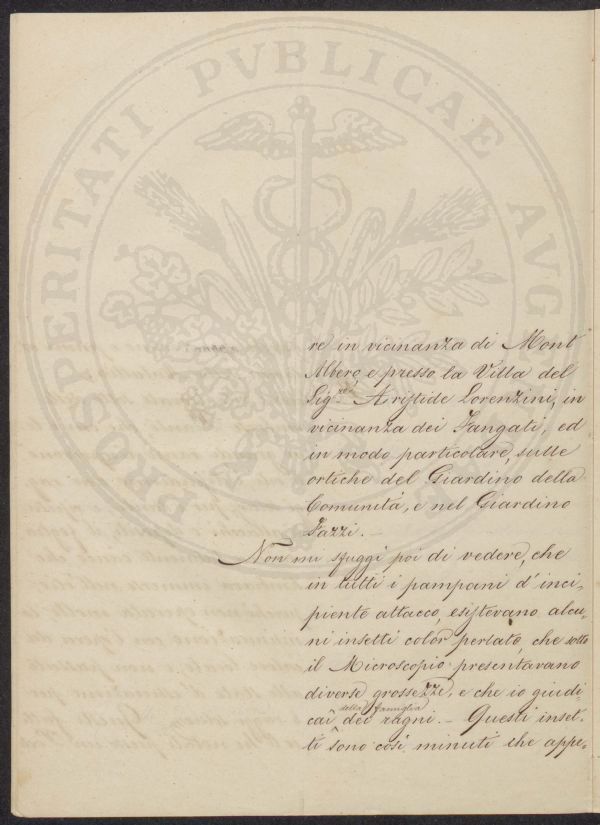 PROSPERITATI PVBLICAE AVG
re in vicinanza di Mont
Albero, e presso la Villa del
Sig.re Aristide Lorenzini, in
vicinanza dei Fangati, ed
in modo particolare, sulle
ortiche del Giardino della
Comunità, e nel Giardino
Fazzi. —
Non mi sfuggì poi di vedere, che
in tutti i pampani d'inci-
piente attacco, esistevano alcu-
ni insetti color perlato, che sotto
il Microscopio presentavano
diverse grossezze, e che io giudi-
della famiglia
cai dei ragni. — Questi inset-
ti sono così minuti che appe-